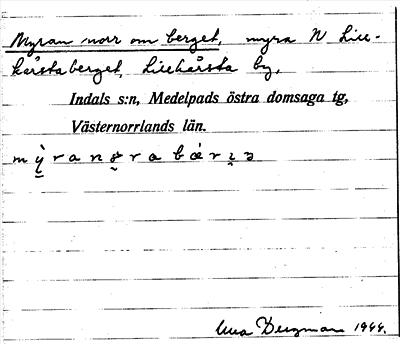 Myran norr om berget, myra N Lill-
hårstaberget, Lillhårsta by,
Indals s:n, Medelpads östra domsaga tg,
Västernorrlands län.
Bergman 1944.